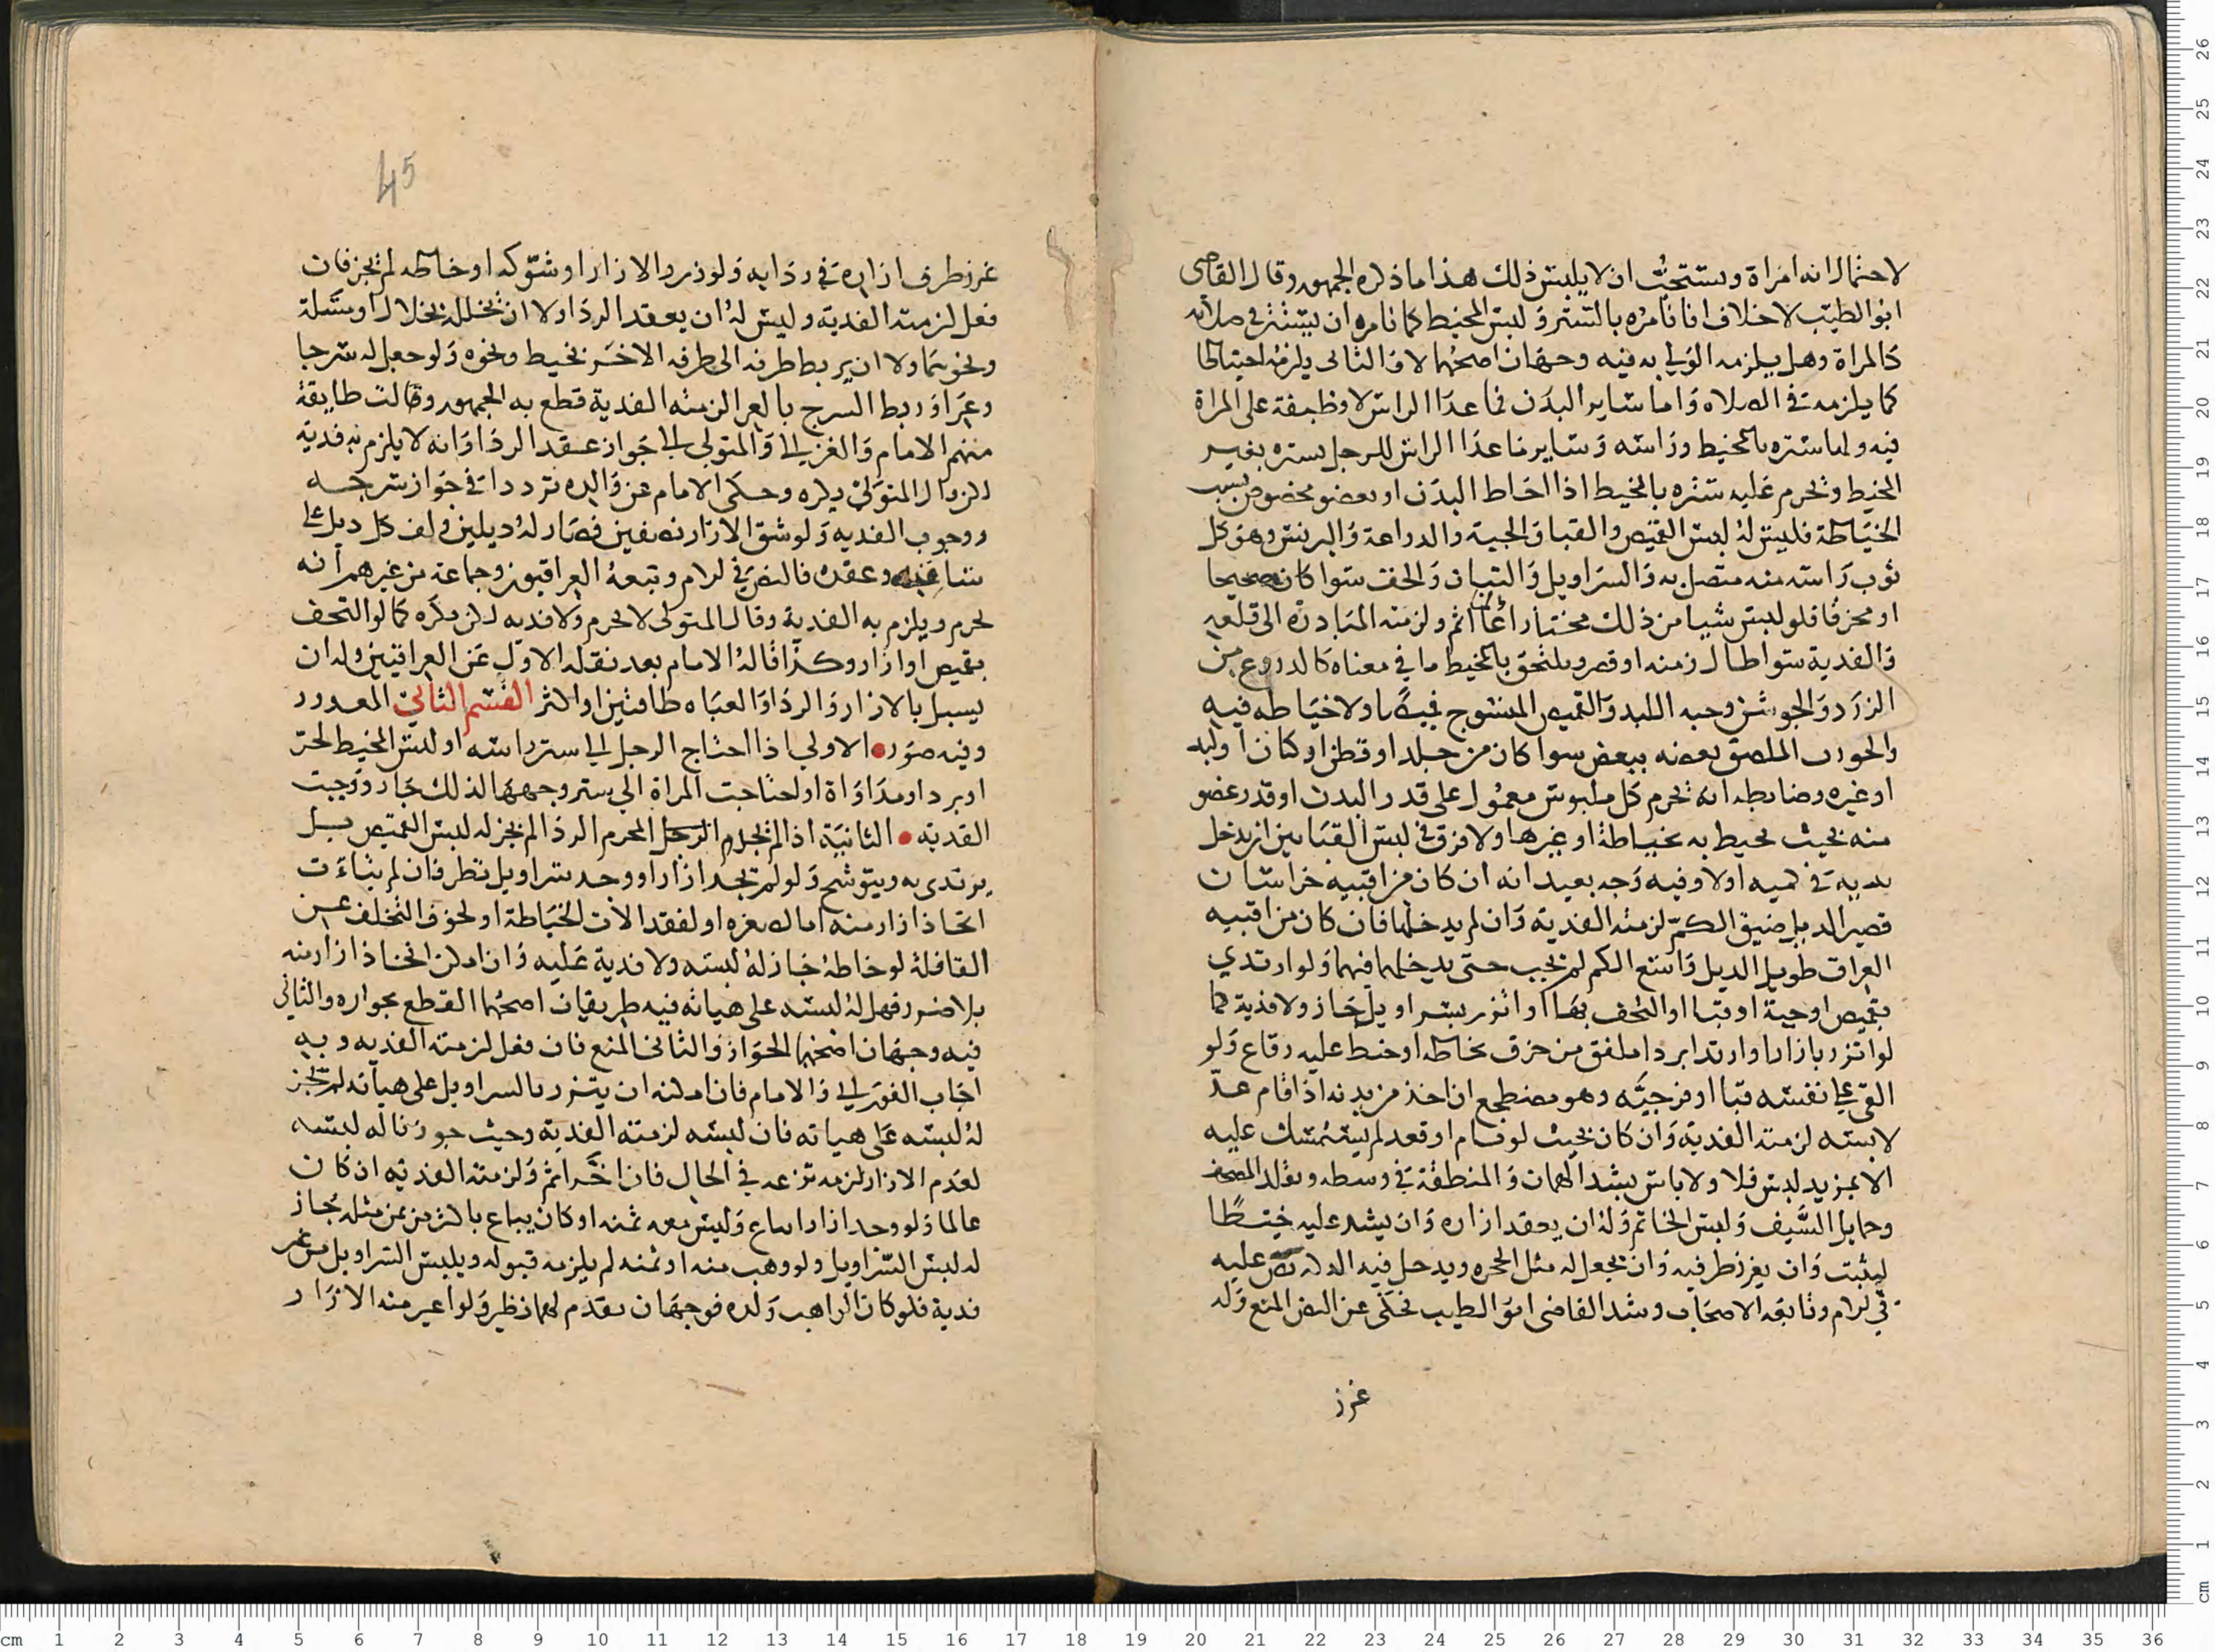 لاحتمال انه امراة ويستحب ان لا يلبس ذلك هذا ما ذكره الجمهور وقال القاضي
ابو الطيب لا خلاف انا نامره بالتستر ولبس المخيط كما نامره ان يستتر في صلاته
كالمراة وهل يلزمه الفدية فيه وجهان اصحهما لا والثاني يلزمه احتياطا
كما يلزمه في الصلاه واما ساير البدن فما عدا الراس لا وظيفة على المراة
فيه ولها ستره بالمخيط وراسه وساير ما عدا الراس للرجل ستره بغير
المخيط ويحرم عليه ستره بالمخيط اذا احاط البدن او بعضو مخصوص بسبب
الخياطة فليس له لبس القميص والقبا والجبة والدراعة والبرنس وهو كل
ثوب راسه منه متصل به والسراويل والتبان والخف سوا كان صحيحا
او مخرقا فلو لبس شيا من ذلك مختارا عالما اثم ولزمته المبادرة الى قلعه
والفدية سوا طال زمنه او قصر ويلتحق بالمخيط ما في معناه كالدروع من
الزرد والجوشن وجبه اللبد والقميص المنسوج ولا خياطه فيه
والجورب الملصق بعضه ببعض سوا كان من جلد او قطن او كتان او لبد
او غيره وضابطه انه يحرم كل ملبوس معمول على قدر البدن او قدر عضو
منه بحيث يحيط به بخياطة او غيرها ولا فرق في لبس القبا بين ان يدخل
يديه في كميه او لا وفيه وجه بعيد انه ان كان من اقبيه خراسان
قصير الذيل ضيق الكم لزمته الفدية وان لم يدخلها فان كان من اقبيه
العراق طويل الذيل واسع الكم لم يجب حتى يدخلهما فيهما ولو ارتدي
بقميص او جبة او قبا او التحف بها او اتزر بسراويل جاز ولا فدية كما
لو اتزر بازار او ارتدا بردا ملفق من خرق بخاطه او خيط عليه رقاع ولو
القى على نفسه قبا او فرجيه وهو مضطجع ان اخذ من بدنه اذا قام عد
لابسه لزمته الفدية وان كان بحيث لو قام او قعد لم يستمسك عليه
الا بمزيد لبس فلا ولا باس بشد الهميان والمنطقة في وسطه وتقلد المصحف
وحمايل السيف ولبس الخاتم وله ان يعقد ازاره وان يشد عليه خيطا
ليثبت وان يغرز طرفيه وان يجعل له مثل الحجره ويدخل فيه نص عليه
في الام وتابعه الاصحاب وشذ القاضي ابو الطيب فحكى عن النص المنع وله
غرز
45
غرز طرف ازاره في ردايه ولو زر والازار او شوكه او خاطه لم يجز فان
فعل لزمته الفدية وليس له ان يعقد الردا ولا ان يخلله بخلال او مسلة
ونحوهما ولا ان يربط طرفه الى طرفه الاخر بخيط ونحوه ولو جعل له شرجا
وعرا وربط الشرج بالعرا لزمته الفدية قطع به الجمهور وقالت طايفة
منهم الامام والغزالي والمتولي الى جواز عقد الردا وانه لا يلزم به فدية
لكن قال المتولي يكره وحكى الامام عن والده ترددا في جواز شرجه
ووجوب الفديه ولو شق الازار نصفين فصار له ذيلين ولف كل ذيل على
ساق وعقده فالنص في الام وتبعه العراقيون وجماعة من غيرهم انه
يحرم ويلزم به الفدية وقال المتولي لا يحرم ولا فديه لكن يكره كما لو التحف
بقميص او ازار وكذا قاله الامام بعد نقله الاول عن العراقيين وله ان
يسبل بالازار والردا والعباه طاقتين او اكثر القسم الثاني المعدور
وفيه صور الاولى اذا احتاج الرجل الى ستر راسه او لبس المخيط لحر
او برد او مداواة او احتاجت المراة الى ستر وجهها لذلك جاز ووجبت
الفديه الثانية اذا لم يجد الرجل المحرم الردا لم يجز له لبس القميص بل
يرتدي به ويتوشح ولو لم يجد ازارا ووجد سراويل نظر فان لم يتات
اتخاذ ازار منه اما لصغره او لفقد الات الخياطة او لخوف التخلف عن
القافلة لو خاطه جاز له لبسه ولا فدية عليه وان امكن اتخاذ ازار منه
بلا ضرر فهل له لبسه على هياته فيه طريقان اصحهما القطع بجوازه والثاني
فيه وجهان اصحهما الجواز والثاني المنع فان فعل لزمته الفديه وبه
اجاب الغزالي والامام فان امكنه ان يتزر بالسراويل على هياته لم يجز
له لبسه على هياته فان لبسه لزمته الفدية وحيث جوزنا له لبسه
لعدم الازار لزمه نزعه في الحال فان اخر اثم ولزمته الفديه ان كان
عالما ولو وجد ازارا يباع وليس معه ثمنه او كان يباع باكثر من ثمن مثله جاز
له لبس السراويل ولو وهب منه او ثمنه لم يلزمه قبوله ويلبس السراويل من غير
فدية فلو كان الواهب ولده فوجهان تقدم لهما نظير ولو اعير منه الازار